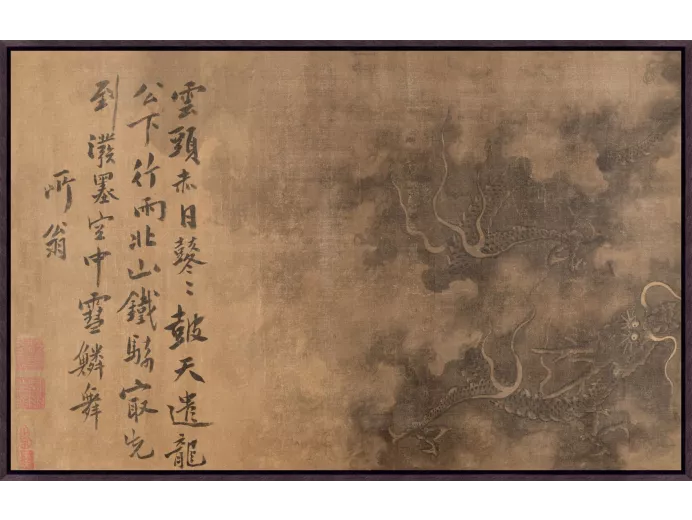 雲頭赤日鼕〻鼓天遣龍
公下行雨北山鐵騎寂先
到潑墨空中雪鱗舞
所翁